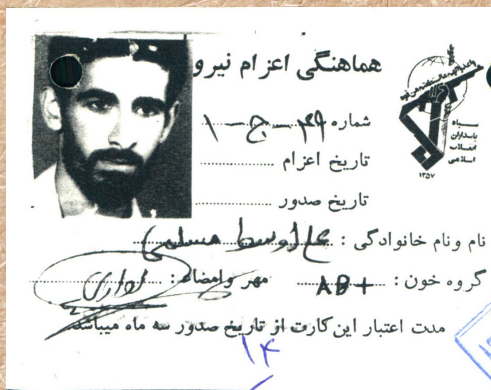 هماهنگی اعزام نیرو
سپاه
پاسداران
انقلاب
اسلامی
۱۳۵۷
شماره ۴۹ - ج - ۱
تاریخ اعزام
تاریخ صدور
نام ونام خانوادگی :
گروه خون : AB+ مهر وامضاء :
مدت اعتبار این کارت از تاریخ صدور سه ماه میباشد
۱۴